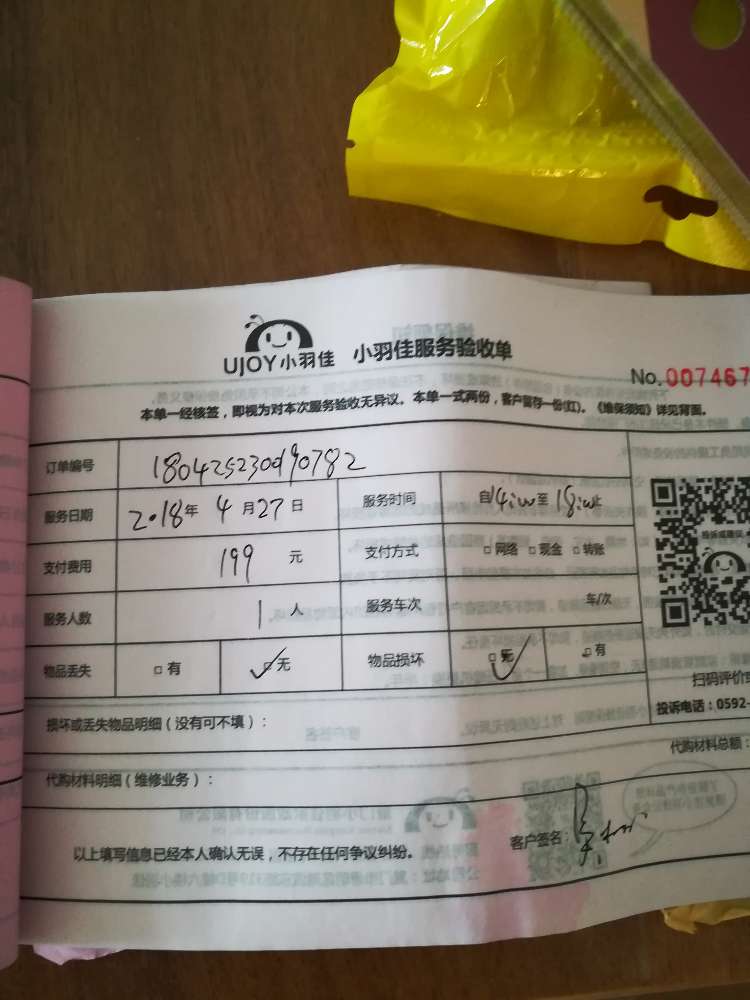 UJOY小羽佳 小羽佳服务验收单
No. 007467
本单一经核签，即视为对本次服务验收无异议。本单一式两份，客户留存一份(红)。《维保须知》详见背面。
订单编号 180425230190782
服务日期 2018年 4月27日 服务时间 自14:00至18:00止
支付费用 199 元 支付方式 □网络 □现金 □转账
服务人数 1人 服务车次 车/次
物品丢失 □有 □无 物品损坏 □无 □有
扫码评价
损坏或丢失物品明细（没有可不填）：
投诉电话：0592-
代购材料总额：
代购材料明细（维修业务）：
客户签名：
以上填写信息已经本人确认无误，不存在任何争议纠纷。